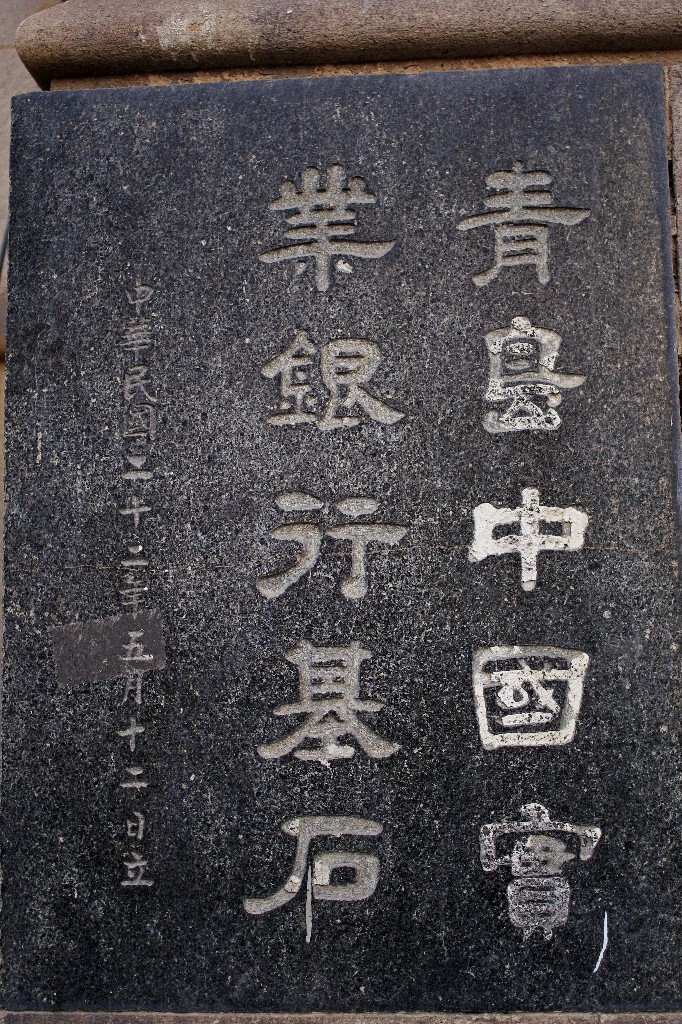 青島中國實
業銀行基石
中華民國二十三年五月十二日立